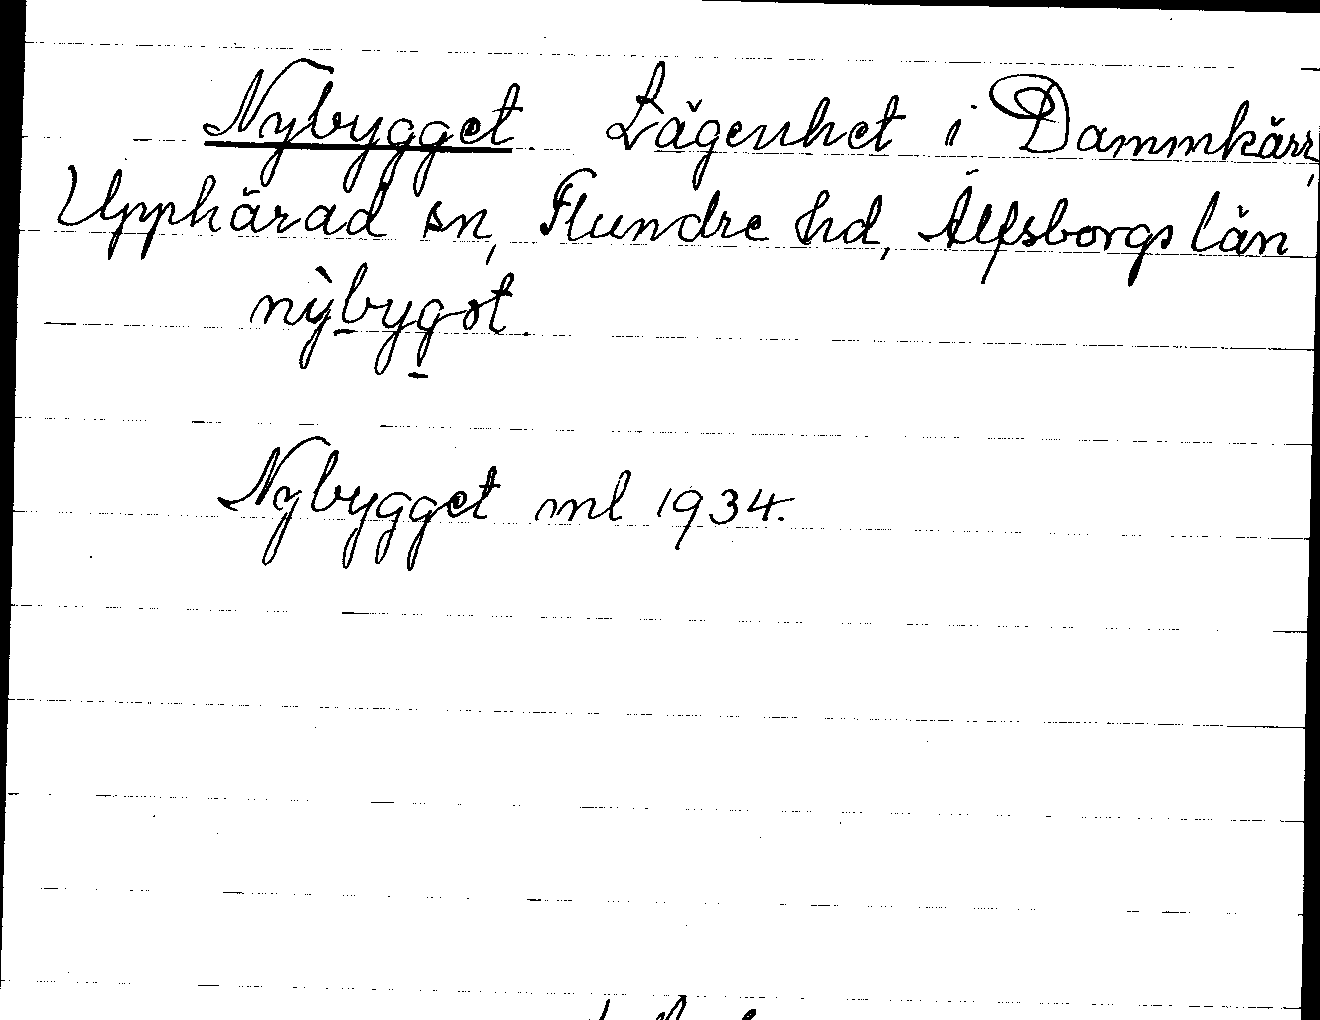 Nybygget. Lägenhet i Dammkärr,
Upphärad sn, Flundre hd, Älfsborgs län
nỳbygət.
Nybygget ml 1934.